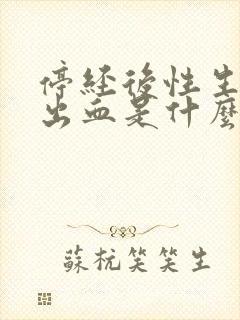 停經後性生
出血是什麼
蘇杭笑笑生